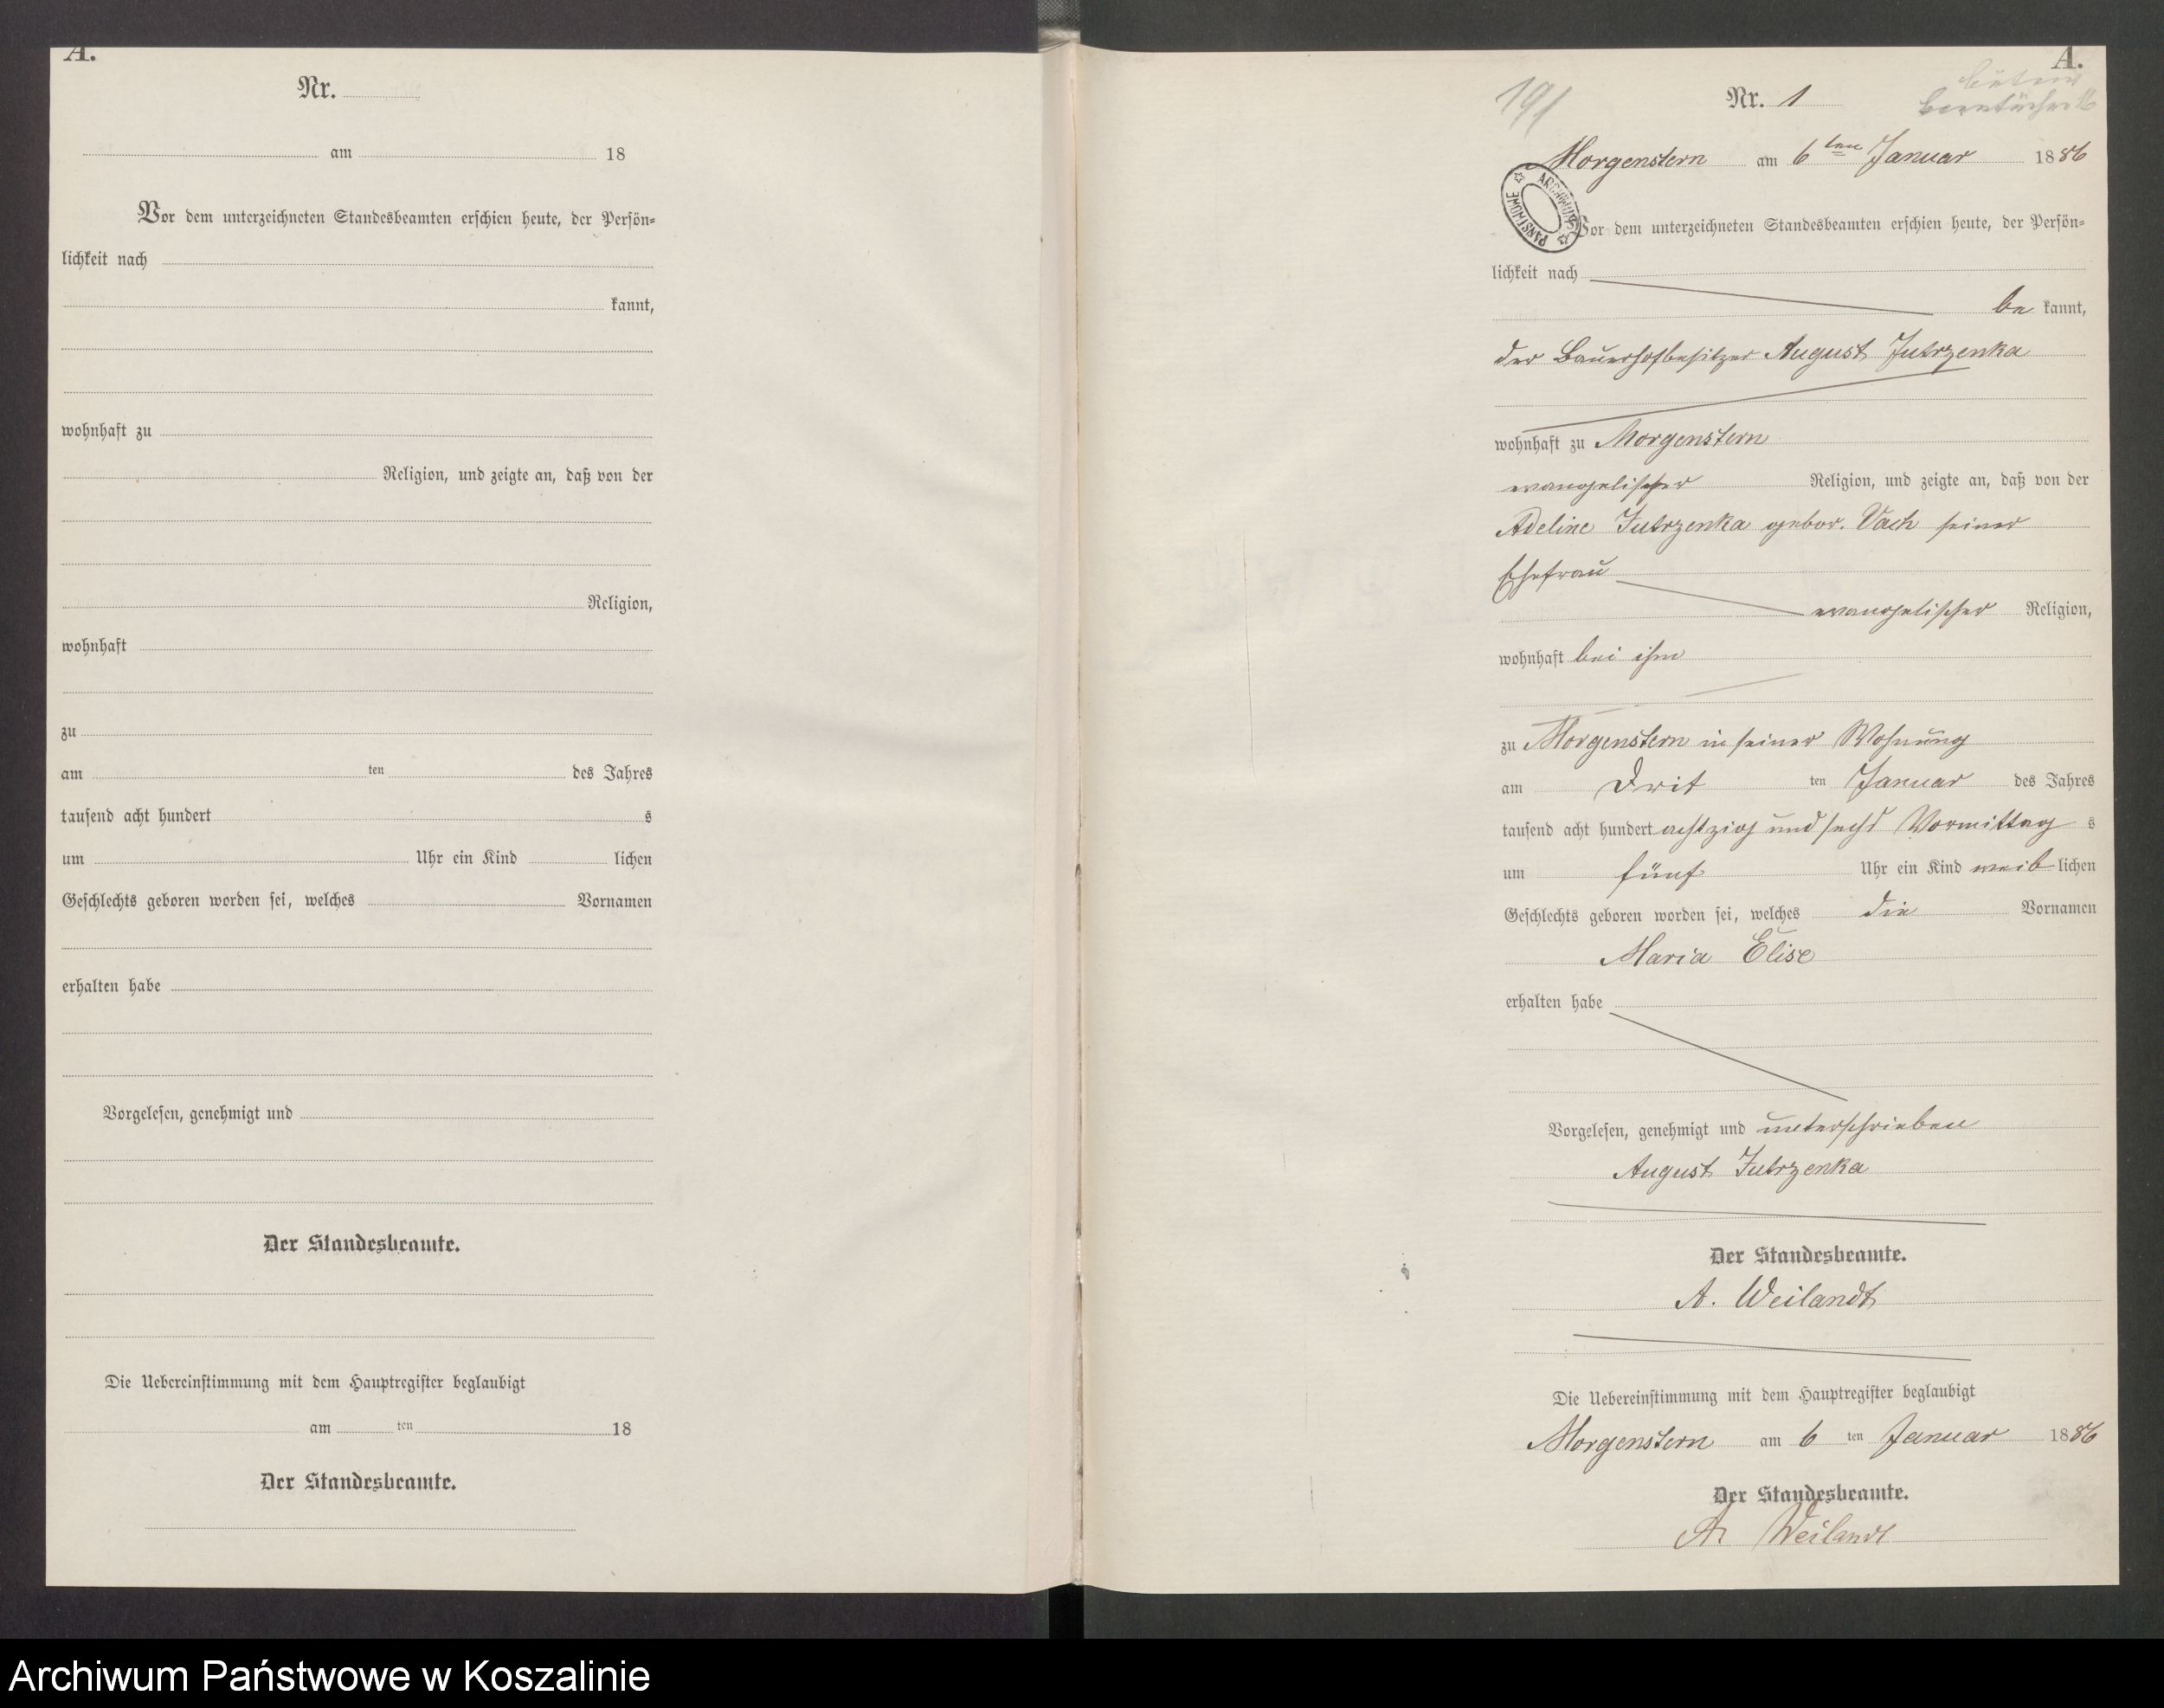 A.
Nr.
am 18
Vor dem unterzeichneten Standesbeamten erschien heute, der Persön-
lichkeit nach
kannt,
wohnhaft zu
Religion, und zeigte an, daß von der
Religion,
wohnhaft
zu
am ten des Jahres
tausend acht hundert s
um Uhr ein Kind lichen
Geschlechts geboren worden sei, welches Vornamen
erhalten habe
Vorgelesen, genehmigt und
Der Standesbeamte.
Die Uebereinstimmung mit dem Hauptregister beglaubigt
am ten 18
Der Standesbeamte.
A.
191
Nr. 1
Morgenstern am 6ten Januar 1886
ARCHIWUM PAŃSTWOWE
Vor dem unterzeichneten Standesbeamten erschien heute, der Persön-
lichkeit nach
be kannt,
der Bauerhofbesitzer August Jutrzenka
wohnhaft zu Morgenstern
evangelischer Religion, und zeigte an, daß von der
Adeline Jutrzenka gebor. Vach seiner
Ehefrau
evangelischer Religion,
wohnhaft bei ihm
zu Morgenstern in seiner Wohnung
am Drit ten Januar des Jahres
tausend acht hundert achtzig und sechs Vormittag s
um fünf Uhr ein Kind weib lichen
Geschlechts geboren worden sei, welches die Vornamen
Maria Elise
erhalten habe
Vorgelesen, genehmigt und unterschrieben
August Jutrzenka
Der Standesbeamte.
A. Weilandt
Die Uebereinstimmung mit dem Hauptregister beglaubigt
Morgenstern am 6 ten Januar 1886
Der Standesbeamte.
A. Weilandt
Archiwum Państwowe w Koszalinie